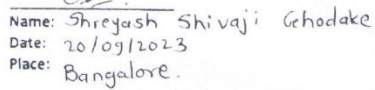 Name: Shreyash Shivaji Ghodake
Date: 20/09/2023
Place: Bangalore.